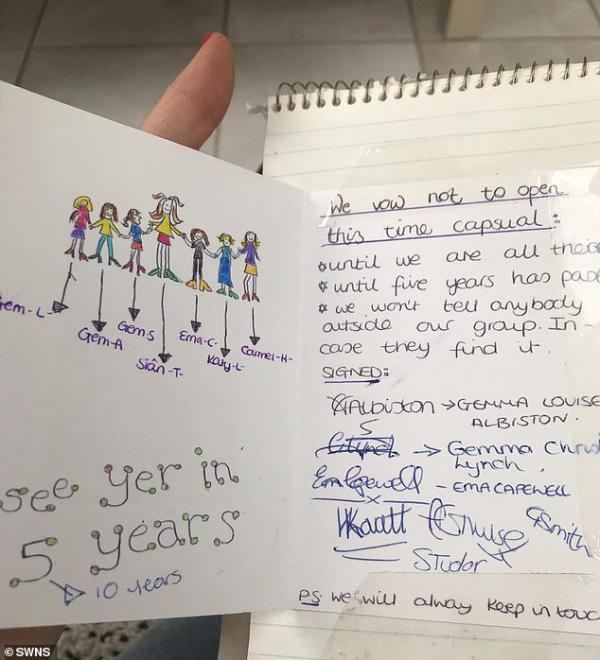 em-L-
Gem-A
Gem-S
Siân-T-
Ema-C-
Katy-L-
Carmel-H-
see yer in
5 years
10 years
We vow not to open
this time capsual:
until we are all ther
until five years has pas
we won't tell anybody
outside our group. In-
case they find it.
SIGNED:
GAlbiston → GEMMA LOUISE
ALBISTON.
→ Gemma Chris
Lynch.
EmCapewell - EMA CAPEWELL
CSmith
STudor
PS we will alway keep in touc
© SWNS